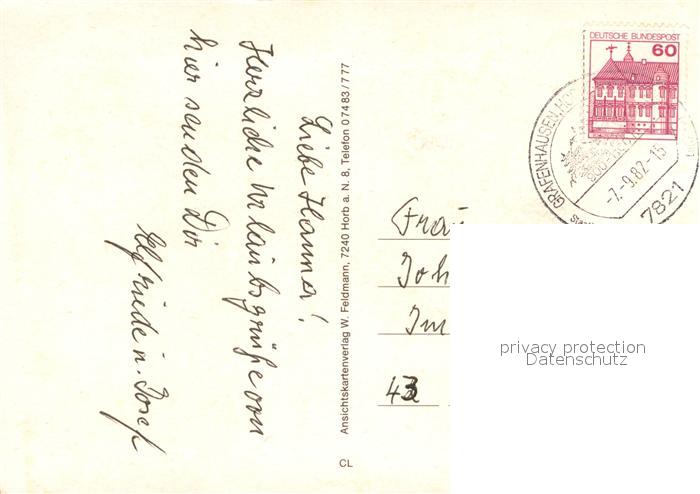 Liebe Hanner!
Herzliche Urlaubsgrüße von
hier senden Dir
Elfriede u. Josef
Ansichtskartenverlag W. Feldmann, 7240 Horb a. N. 8, Telefon 07483/777
CL
DEUTSCHE BUNDESPOST
60
GRAFENHAUSEN, HO
-7.-9.82-15
7821
Frau
Joh
Im
43
privacy protection
Datenschutz